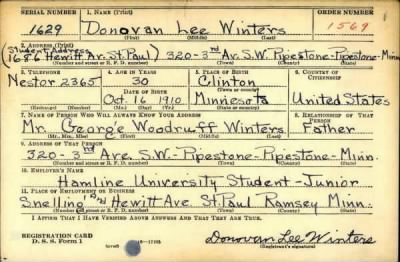 SERIAL NUMBER 1. NAME (Print) ORDER NUMBER
1629 Donovan Lee Winters 1569
(First) (Middle) (Last)
2. ADDRESS (Print)
(Student Address
1686 Hewitt Av. St. Paul) 320-3rd Av. S.W. Pipestone-Pipestone-Minn.
(Number and street or R. F. D. number) (Town) (County) (State)
3. TELEPHONE 4. AGE IN YEARS 5. PLACE OF BIRTH 6. COUNTRY OF CITIZENSHIP
Nestor 2365 30 Clinton
DATE OF BIRTH (Town or county)
Oct. 16 1910 Minnesota United States
(Mo.) (Day) (Yr.) (State or country)
7. NAME OF PERSON WHO WILL ALWAYS KNOW YOUR ADDRESS 8. RELATIONSHIP OF THAT PERSON
Mr. George Woodruff Winters Father
(Mr., Mrs., Miss) (First) (Middle) (Last)
9. ADDRESS OF THAT PERSON
320-3rd Ave. S.W.-Pipestone-Pipestone-Minn.
(Number and street or R. F. D. number) (Town) (County) (State)
10. EMPLOYER'S NAME
Hamline University Student-Junior
11. PLACE OF EMPLOYMENT OR BUSINESS
Snelling and Hewitt Ave. St. Paul Ramsey Minn.
(Number and street or R. F. D. number) (Town) (County) (State)
I AFFIRM THAT I HAVE VERIFIED ABOVE ANSWERS AND THAT THEY ARE TRUE.
REGISTRATION CARD
D. S. S. Form 1 Donovan Lee Winters
(Registrant's signature)